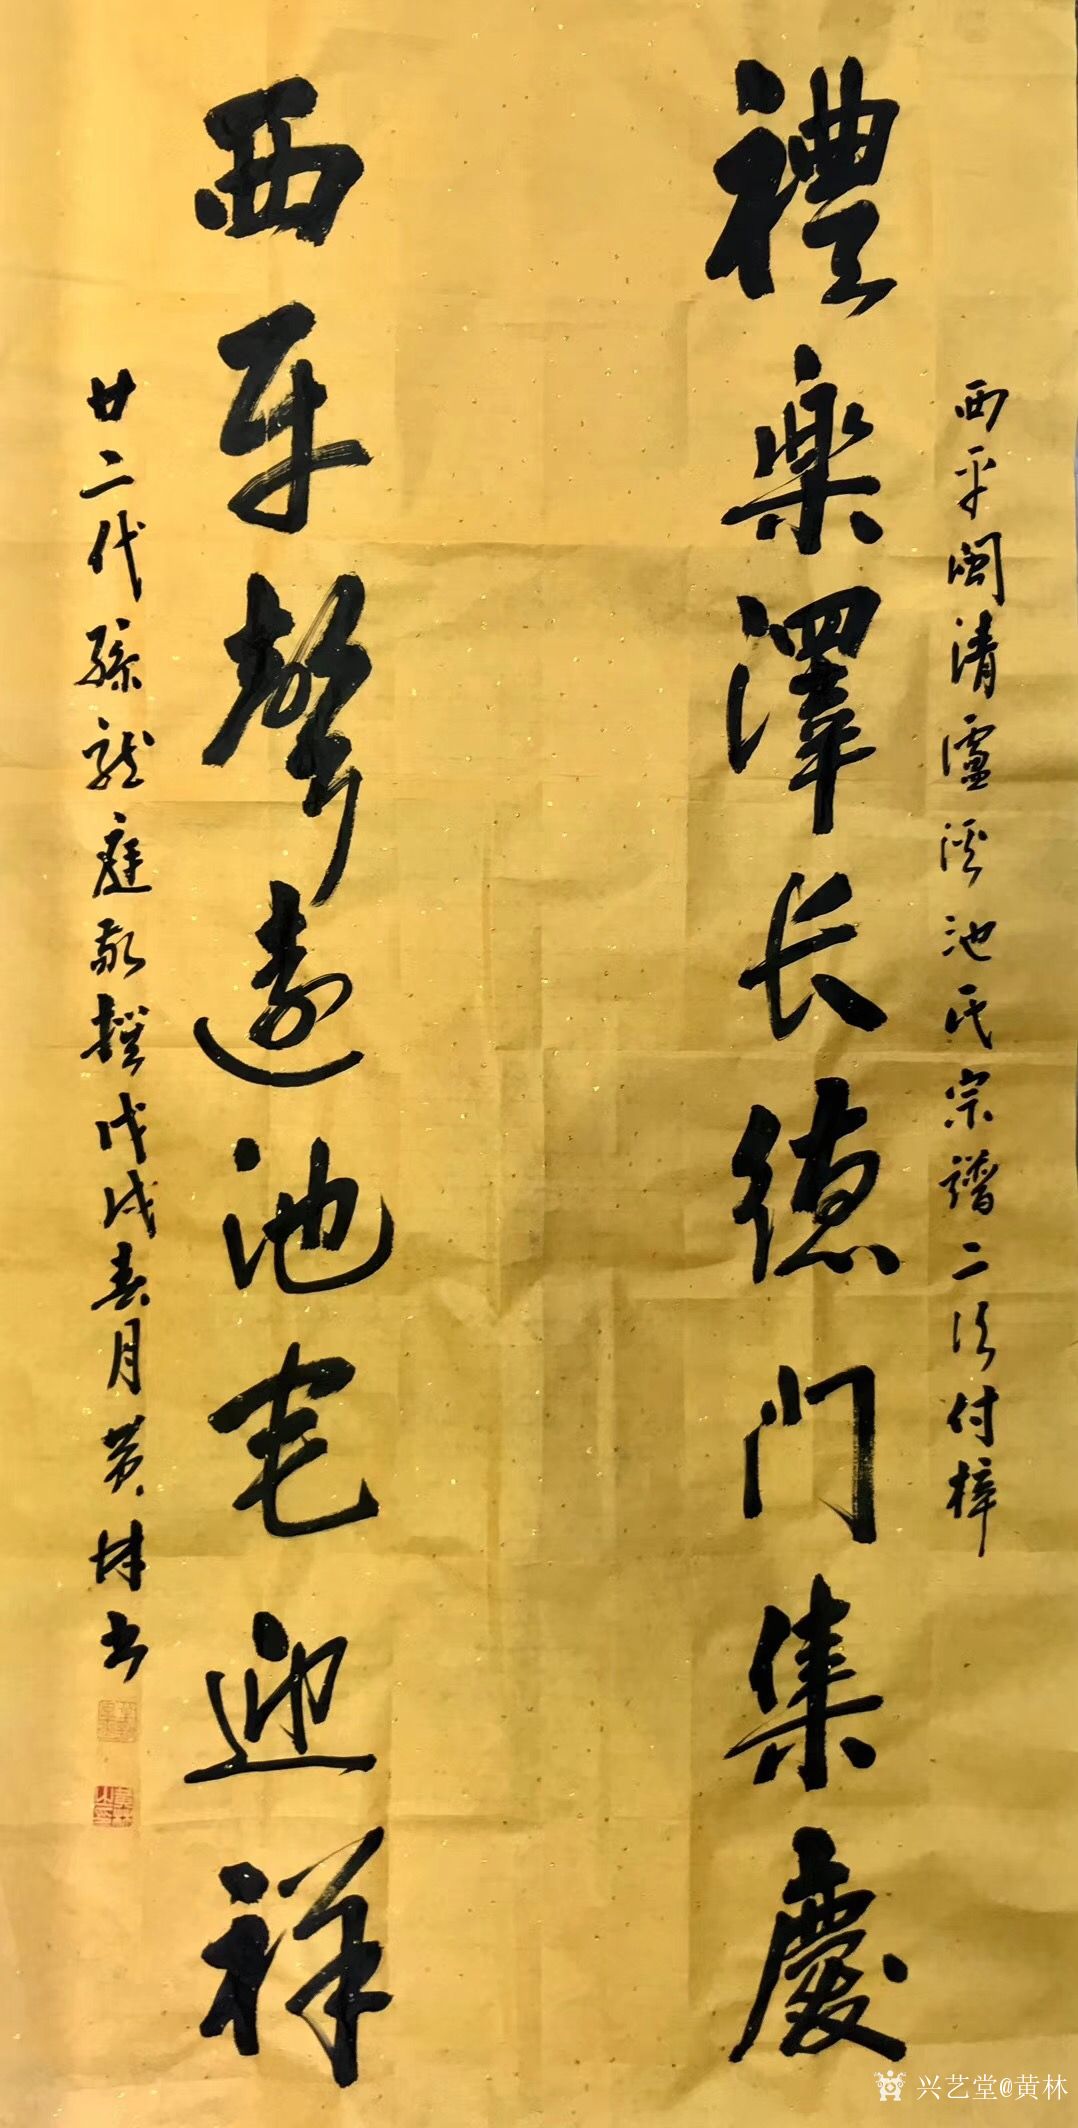 西平闽清瀘溪池氏宗譜二次付梓
禮樂澤长德门集慶
西平聲遠池宅迎祥
廿二代孫龍庭敬撰戊戌春月黄林书
兴艺堂@黄林